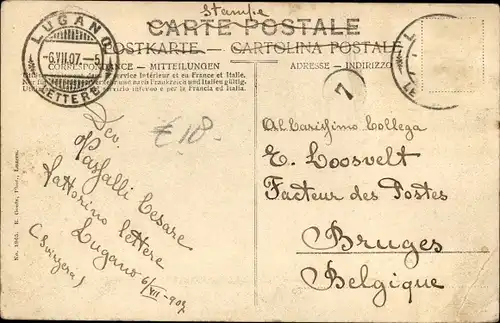 Stampe
CARTE POSTALE
POSTKARTE — CARTOLINA POSTALE
CORRESPONDANCE — MITTEILUNGEN
ADRESSE — INDIRIZZO
service intérieur et en France et Italie.
und nach Frankreich und Italien gültig.
servizio interno e per la Francia ed Italia
LUGANO
-6.VII.07.-5
LETTERE
L
LE
7
€ 18.
Dev.
Passalli Cesare
Fattorino lettere
Lugano
(Svizzera)
6/VII-907
Al Carissimo Collega
E. Loosvelt
Facteur des Postes
Bruges
Belgique